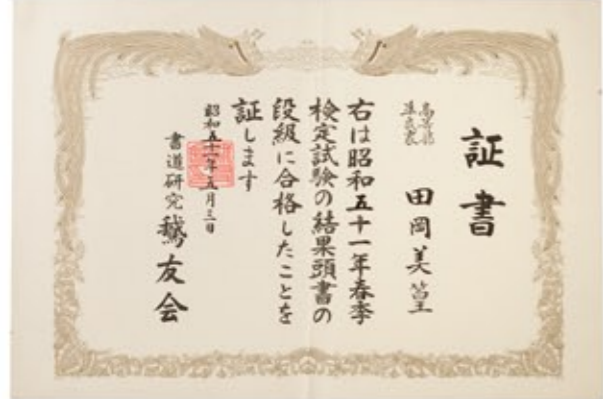 証書
高等部
準氏衆
田岡美
右は昭和五十一年春季
検定試験の結果頭書の
段級に合格したことを
証します
昭和五十一年五月三日
書道研究
鵞友会